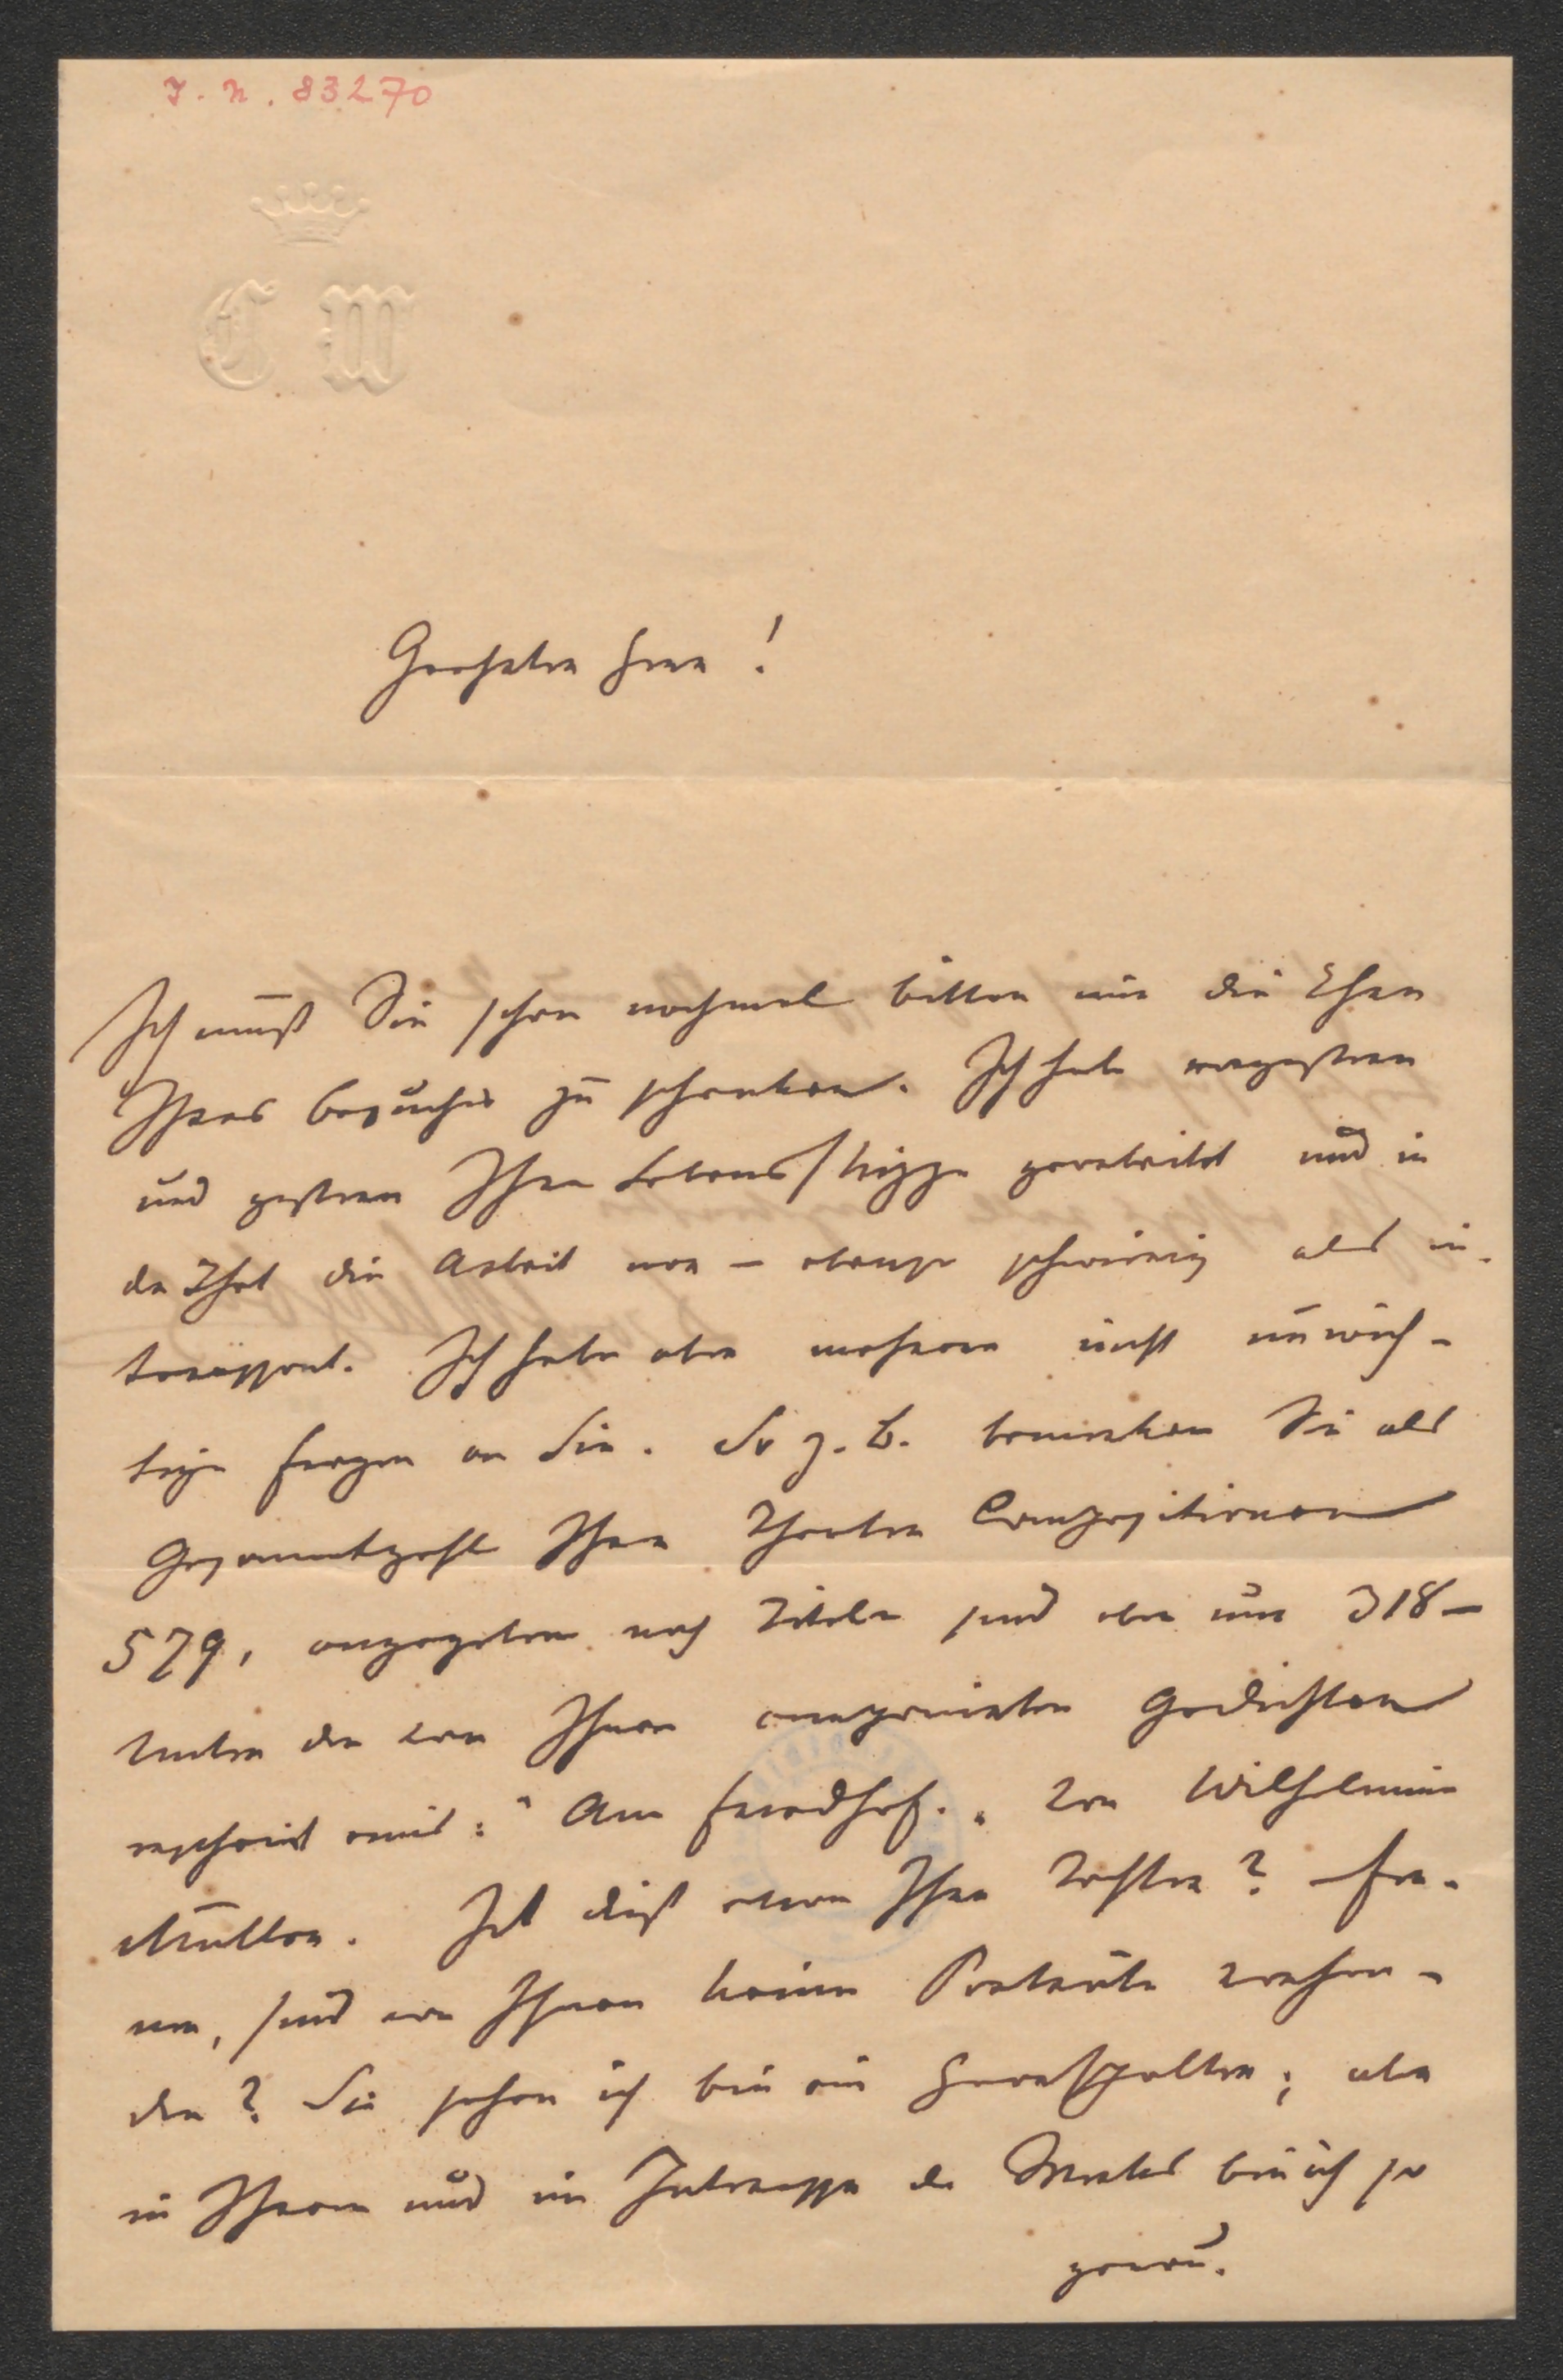 I. N. 83270
C W
Geehrter Herr!
Ich muß Sie schon nochmal bitten mir die Ehre
Ihres Besuches zu schenken. Ich habe vorgestern
und gestern Ihre Lebensskizze gearbeitet und in
der That die Arbeit war – ebenso schwierig als in-
teressant. Ich habe aber mehrere nicht unwich-
tige Fragen an Sie. So z. B. bemerken Sie als
Gesammtzahl Ihrer Theater Compositionen
579, angegeben nach Titeln sind aber nur 318 –
Unter den von Ihnen componirten Gedichten
erscheint eins: "Am Friedhof." von Wilhelmine
Müller. Ist dieß etwa Ihre Tochter? Fer-
ner, sind von Ihnen keine Porträte vorhan-
den? Sie sehen ich bin ein Haarspalter; aber
in Ihrem und im Interesse des Werkes bin ich so
genau.